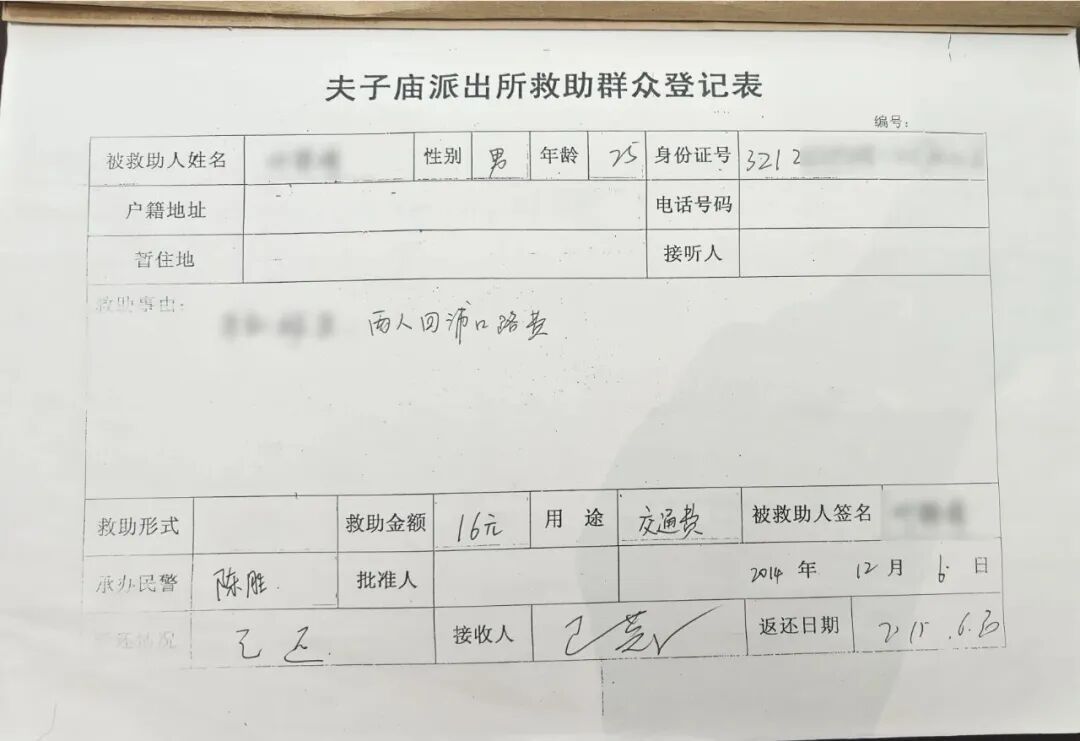 夫子庙派出所救助群众登记表
编号:
被救助人姓名 性别 男 年龄 25 身份证号 3212
户籍地址 电话号码
暂住地 接听人
救助事由:
两人回浦口路费
救助形式 救助金额 16元 用 途 交通费 被救助人签名
承办民警 陈胜 批准人 2014 年 12 月 6 日
还情况 已还 接收人 返还日期 2015.6.30